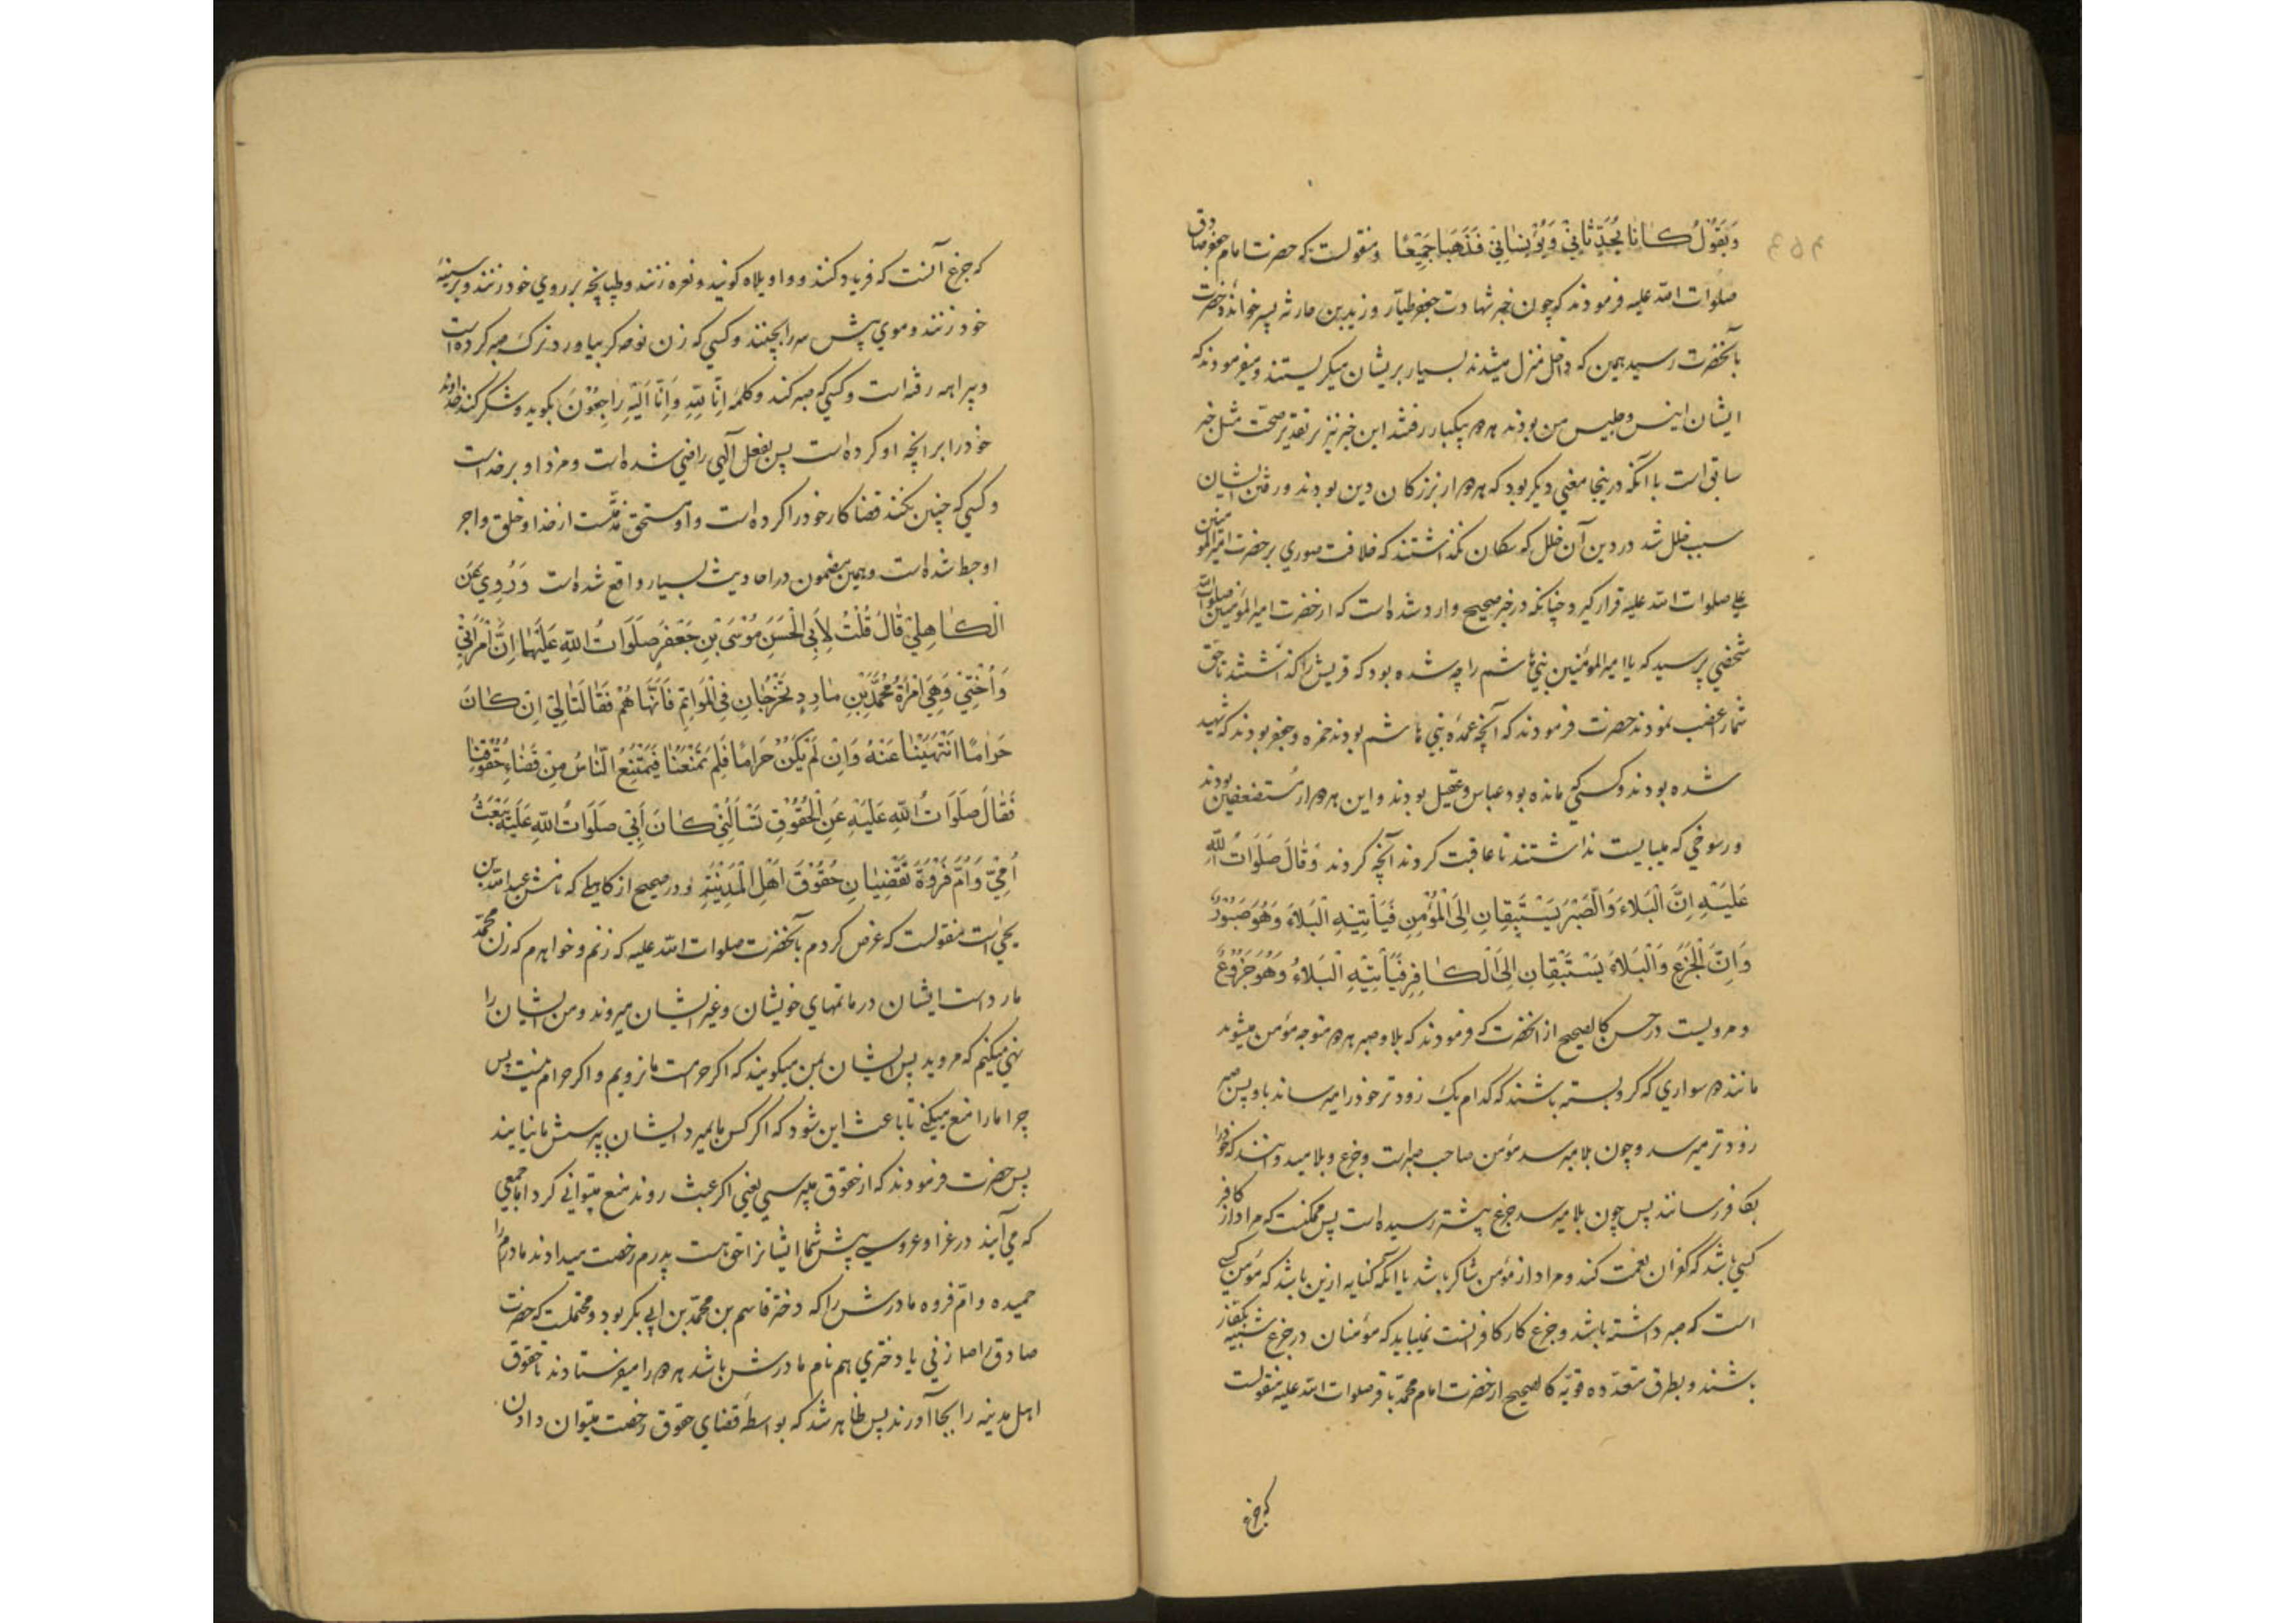 وَيَقُوْلُ كَانَا يُحَدِّثَانِيْ وَيُوْنِسَانِيْ فَذَهَبَا جَمِيْعًا ومنقولست که حضرت امام جعفر صادق
صلوات الله علیه فرمودند که چون خبر شهادت جعفر طیار و زید بن حارثه پسر خوانده حضرت
بآنحضرت رسید همین که داخل منزل میشدند بسیار بریشان میکریستند و میفرمودند که
ایشان انیس و جلیس من بودند هر دو بیکبار رفتند این خبر نیز بر تقدیر صحت مثل خبر
سابق است با آنکه درینجا معنی دیکر بود که هر دو از بزرکان دین بودند و رفتن ایشان
سبب خلل شد در دین آن خلل که سکان نکذاشتند که خلافت صوري بر حضرت امیر المومنین
علي صلوات الله علیه قرار کیرد چنانکه در خبر صحیح وارد شده است که از حضرت امیر المؤمنین صلوات الله
شخصي پرسید که یا امیر المومنین بني هاشم را چه شده بود که قریش را کذاشتند تا حق
شما را غصب نمودند حضرت فرمودند که آنچه عمده بني هاشم بودند حمزه و جعفر بودند که شهید
شده بودند و کسي که مانده بود عباس و عقیل بودند و این هر دو از مستضعفین بودند
ورسوخي که میبایست نداشتند تا عاقبت کردند آنچه کردند وَقَالَ صَلَوَاتُ اللهِ
عَلَيْهِ اِنَّ الْبَلَاءَ وَالصَّبْرَ يَسْتَبِقَانِ اِلَى الْمُؤْمِنِ فَيَأْتِيْهِ الْبَلَاءُ وَهُوَ صَبُوْرٌ
وَاِنَّ الْجَزَعَ وَالْبَلَاءَ يَسْتَبِقَانِ اِلَى الْكَافِرِ فَيَأْتِيْهِ الْبَلَاءُ وَهُوَ جَزُوْعٌ
و مرویست در حسن کالصحیح از آنحضرت که فرمودند که بلا و صبر هر دو متوجه مؤمن میشوند
مانند دو سواري که کرو بسته باشند که کدام یک زودتر خود را میرساند باو پس صبر
زودتر میرسد و چون بلا میرسد مؤمن صاحب صبر است و جزع و بلا میدوانند که خود را
بکافر رسانند پس چون بلا میرسد جزع پیشتر رسیده است پس ممکنست که مراد از کافر
کسي باشد که کفران نعمت کند و مراد از مؤمن شاکر باشد یا آنکه کنایه ازین باشد که مؤمن کسي
است که صبر داشته باشد و جزع کار کافرانست نمیباید که مؤمنان در جزع شبیه بکفار
باشند و بطرق متعدده قویه کالصحیح از حضرت امام محمد باقر صلوات الله علیه منقولست
که جزع
که جزع آنست که فریاد کنند و واویلاه کویند و نعره زنند و طپانچه بر روي خود زنند و بر سینه
خود زنند و موي پیش سر را بچینند و کسي که زن نوحه کر بیاورد ترک صبر کرده است
و بیراهه رفته است و کسي که صبر کند و کلمه اِنَّا لِلّٰهِ وَاِنَّا اِلَيْهِ رَاجِعُوْنَ بکوید و شکر کند خداوند
خود را بر انچه او کرده است پس بفعل آلهي راضي شده است و مزد او بر خداست
و کسي که چنین نکند قضا کار خود را کرده است و او مستحق مذمّتست از خدا و خلق و اجر
او حبط شده است و همین مضمون در احادیث بسیار واقع شده است وَرُوِيَ عَنِ
الْكَاهِلِيِّ قَالَ قُلْتُ لِأَبِي الْحَسَنِ مُوْسَى بْنِ جَعْفَرٍ صَلَوَاتُ اللهِ عَلَيْهِمَا اِنَّ امْرَأَتِيْ
وَاُخْتِيْ وَهِيَ امْرَأَةُ مُحَمَّدِ بْنِ مَارِدٍ تَخْرُجَانِ فِي الْمَوَاتِمِ فَاَنْهَاهُمَا فَقَالَتَا لِيْ اِنْ كَانَ
حَرَامًا انْتَهَيْنَا عَنْهُ وَاِنْ لَمْ يَكُنْ حَرَامًا فَلِمَ تَمْنَعُنَا فَيَمْتَنِعُ النَّاسُ مِنْ قَضَاءِ حُقُوْقِنَا
فَقَالَ صَلَوَاتُ اللهِ عَلَيْهِ عَنِ الْحُقُوْقِ تَسْأَلُنِيْ كَانَ أَبِيْ صَلَوَاتُ اللهِ عَلَيْهِ يَبْعَثُ
اُمِّيْ وَاُمَّ فَرْوَةَ تَقْضِيَانِ حُقُوْقَ اَهْلِ الْمَدِيْنَةِ و در صحیح از کاهلي که نامش عبد الله بن
یحیي است منقولست که عرض کردم بآنحضرت صلوات الله علیه که زنم و خواهرم که زن محمد
مارد است ایشان در ماتمهاي خویشان و غیر ایشان میروند و من ایشان را
نهي میکنم که مروید پس ایشان بمن میکویند که اکر حرامست ما نرویم و اکر حرام نیست پس
چرا ما را منع میکني تا باعث این شود که اکر کس ما بمیرد ایشان بپرسش ما نیایند
پس حضرت فرمودند که از حقوق میپرسي یعني اکر عبث روند منع میتواني کرد اما جمعي
که مي آیند در عزا و عروسي پیش شما ایشانرا حقي هست پدرم رخصت میدادند مادرم را
حمیده و ام فروه مادرش را که دختر قاسم بن محمد بن ابي بکر بود و محتملست که حضرت
صادق را صلا زني یا دختري هم نام مادرش باشد هر دو را میفرستادند تا حقوق
اهل مدینه را بجا آورند پس ظاهر شد که بواسطه قضاي حقوق رخصت میتوان دادن